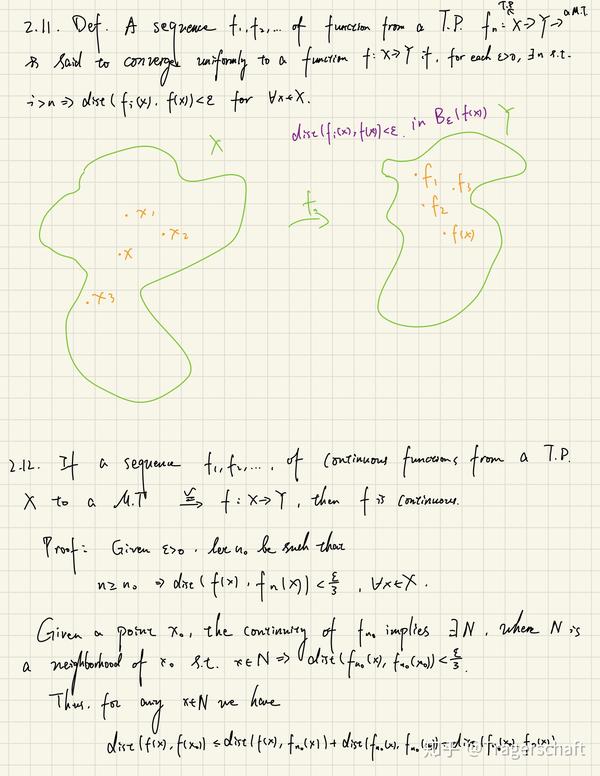 T.P. a M.T.
2.11. Def. A sequence f₁, f₂, ... of function from a T.P. fₙ: X→Y→
is said to converge uniformly to a function f: X→Y if, for each ε>0, ∃n s.t.
i>n ⇒ dist(fᵢ(x), f(x))<ε for ∀x∈X.
dist(fᵢ(x), f(x))<ε in Bε(f(x))
X
Y
·x₁
·x₂
·x
·x₃
·f₁
·f₃
·f₂
·f(x)
2.12. If a sequence f₁, f₂, ..., of continuous functions from a T.P.
X to a M.T f: X→Y, then f is continuous.
Proof: Given ε>0, let n₀ be such that
n≥n₀ ⇒ dist(f(x), fₙ(x))<ε/3, ∀x∈X.
Given a point x₀, the continuity of fₙ₀ implies ∃N, where N is
a neighborhood of x₀ s.t. x∈N ⇒ dist(fₙ₀(x), fₙ₀(x₀))<ε/3.
Thus, for any x∈N we have
dist(f(x), f(x₀)) ≤ dist(f(x), fₙ₀(x)) + dist(fₙ₀(x), fₙ₀(x₀)) + dist(
知乎 @Tragerschaft